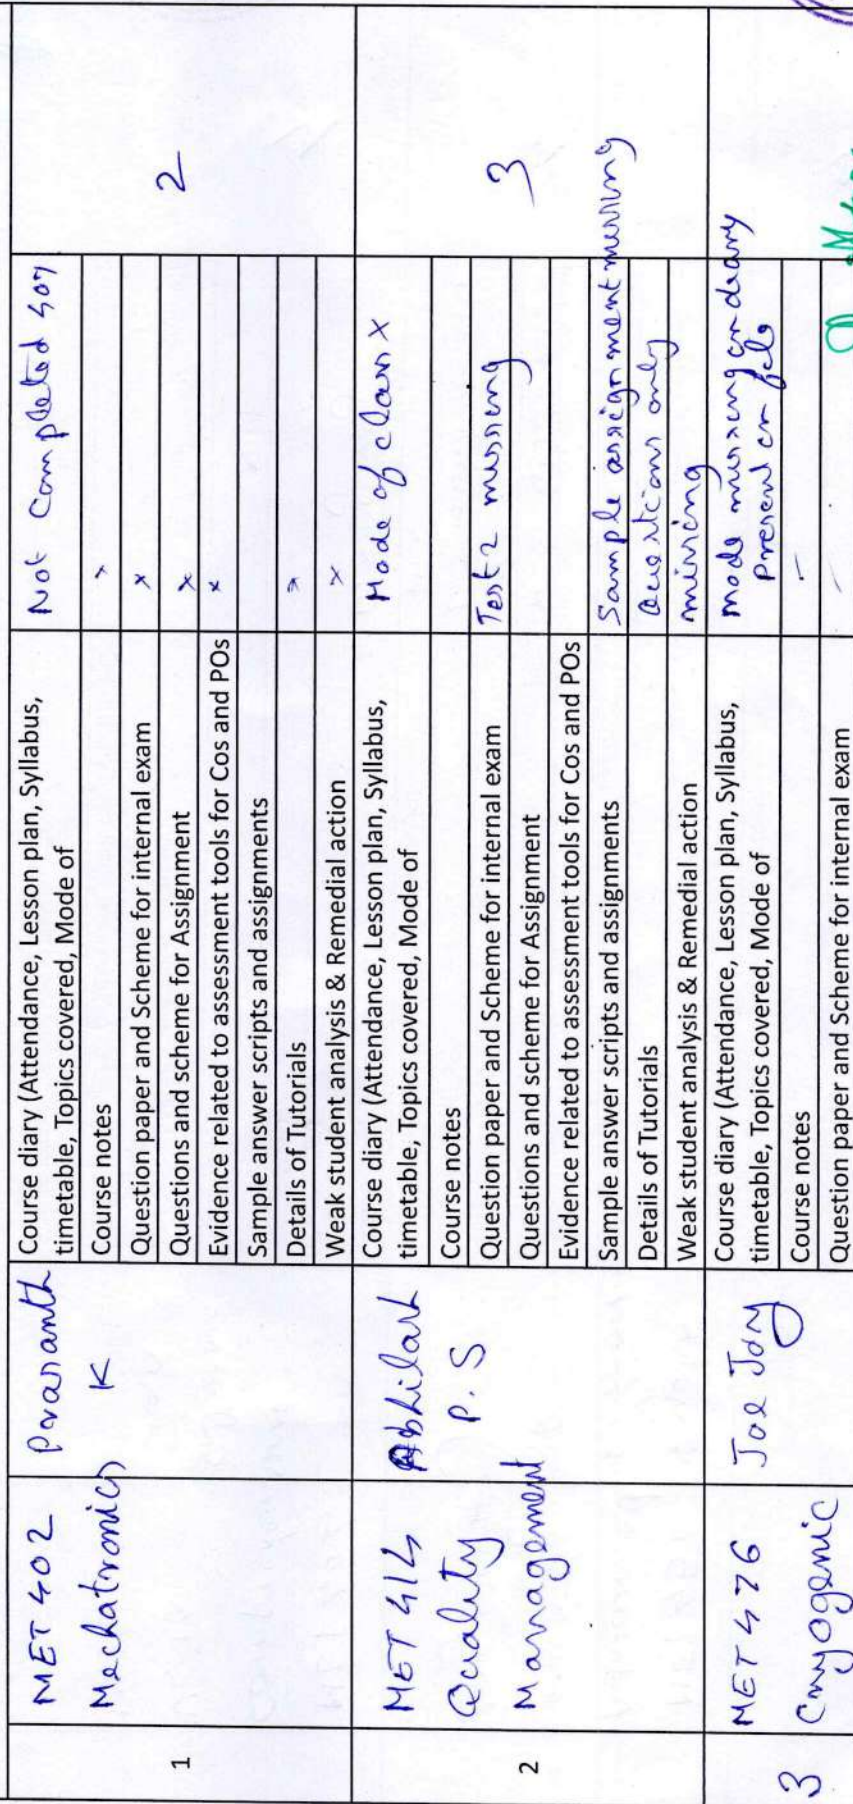 1
MET 402
Mechatronics
Prasanth
K
Course diary (Attendance, Lesson plan, Syllabus,
timetable, Topics covered, Mode of
Not Completed
Course notes
x
Question paper and Scheme for internal exam
x
Questions and scheme for Assignment
x
Evidence related to assessment tools for Cos and POs
x
Sample answer scripts and assignments
Details of Tutorials
x
Weak student analysis & Remedial action
x
2
2
MET 414
Quality
Management
Abhilash
P.S
Course diary (Attendance, Lesson plan, Syllabus,
timetable, Topics covered, Mode of
Mode of class x
Course notes
Question paper and Scheme for internal exam
Test 2 missing
Questions and scheme for Assignment
Evidence related to assessment tools for Cos and POs
Sample answer scripts and assignments
Sample assignment missing
Details of Tutorials
Questions only
Weak student analysis & Remedial action
missing
3
3
MET 476
Cryogenic
Joe Joy
Course diary (Attendance, Lesson plan, Syllabus,
timetable, Topics covered, Mode of
Mode missing on diary
Present on file
Course notes
-
Question paper and Scheme for internal exam